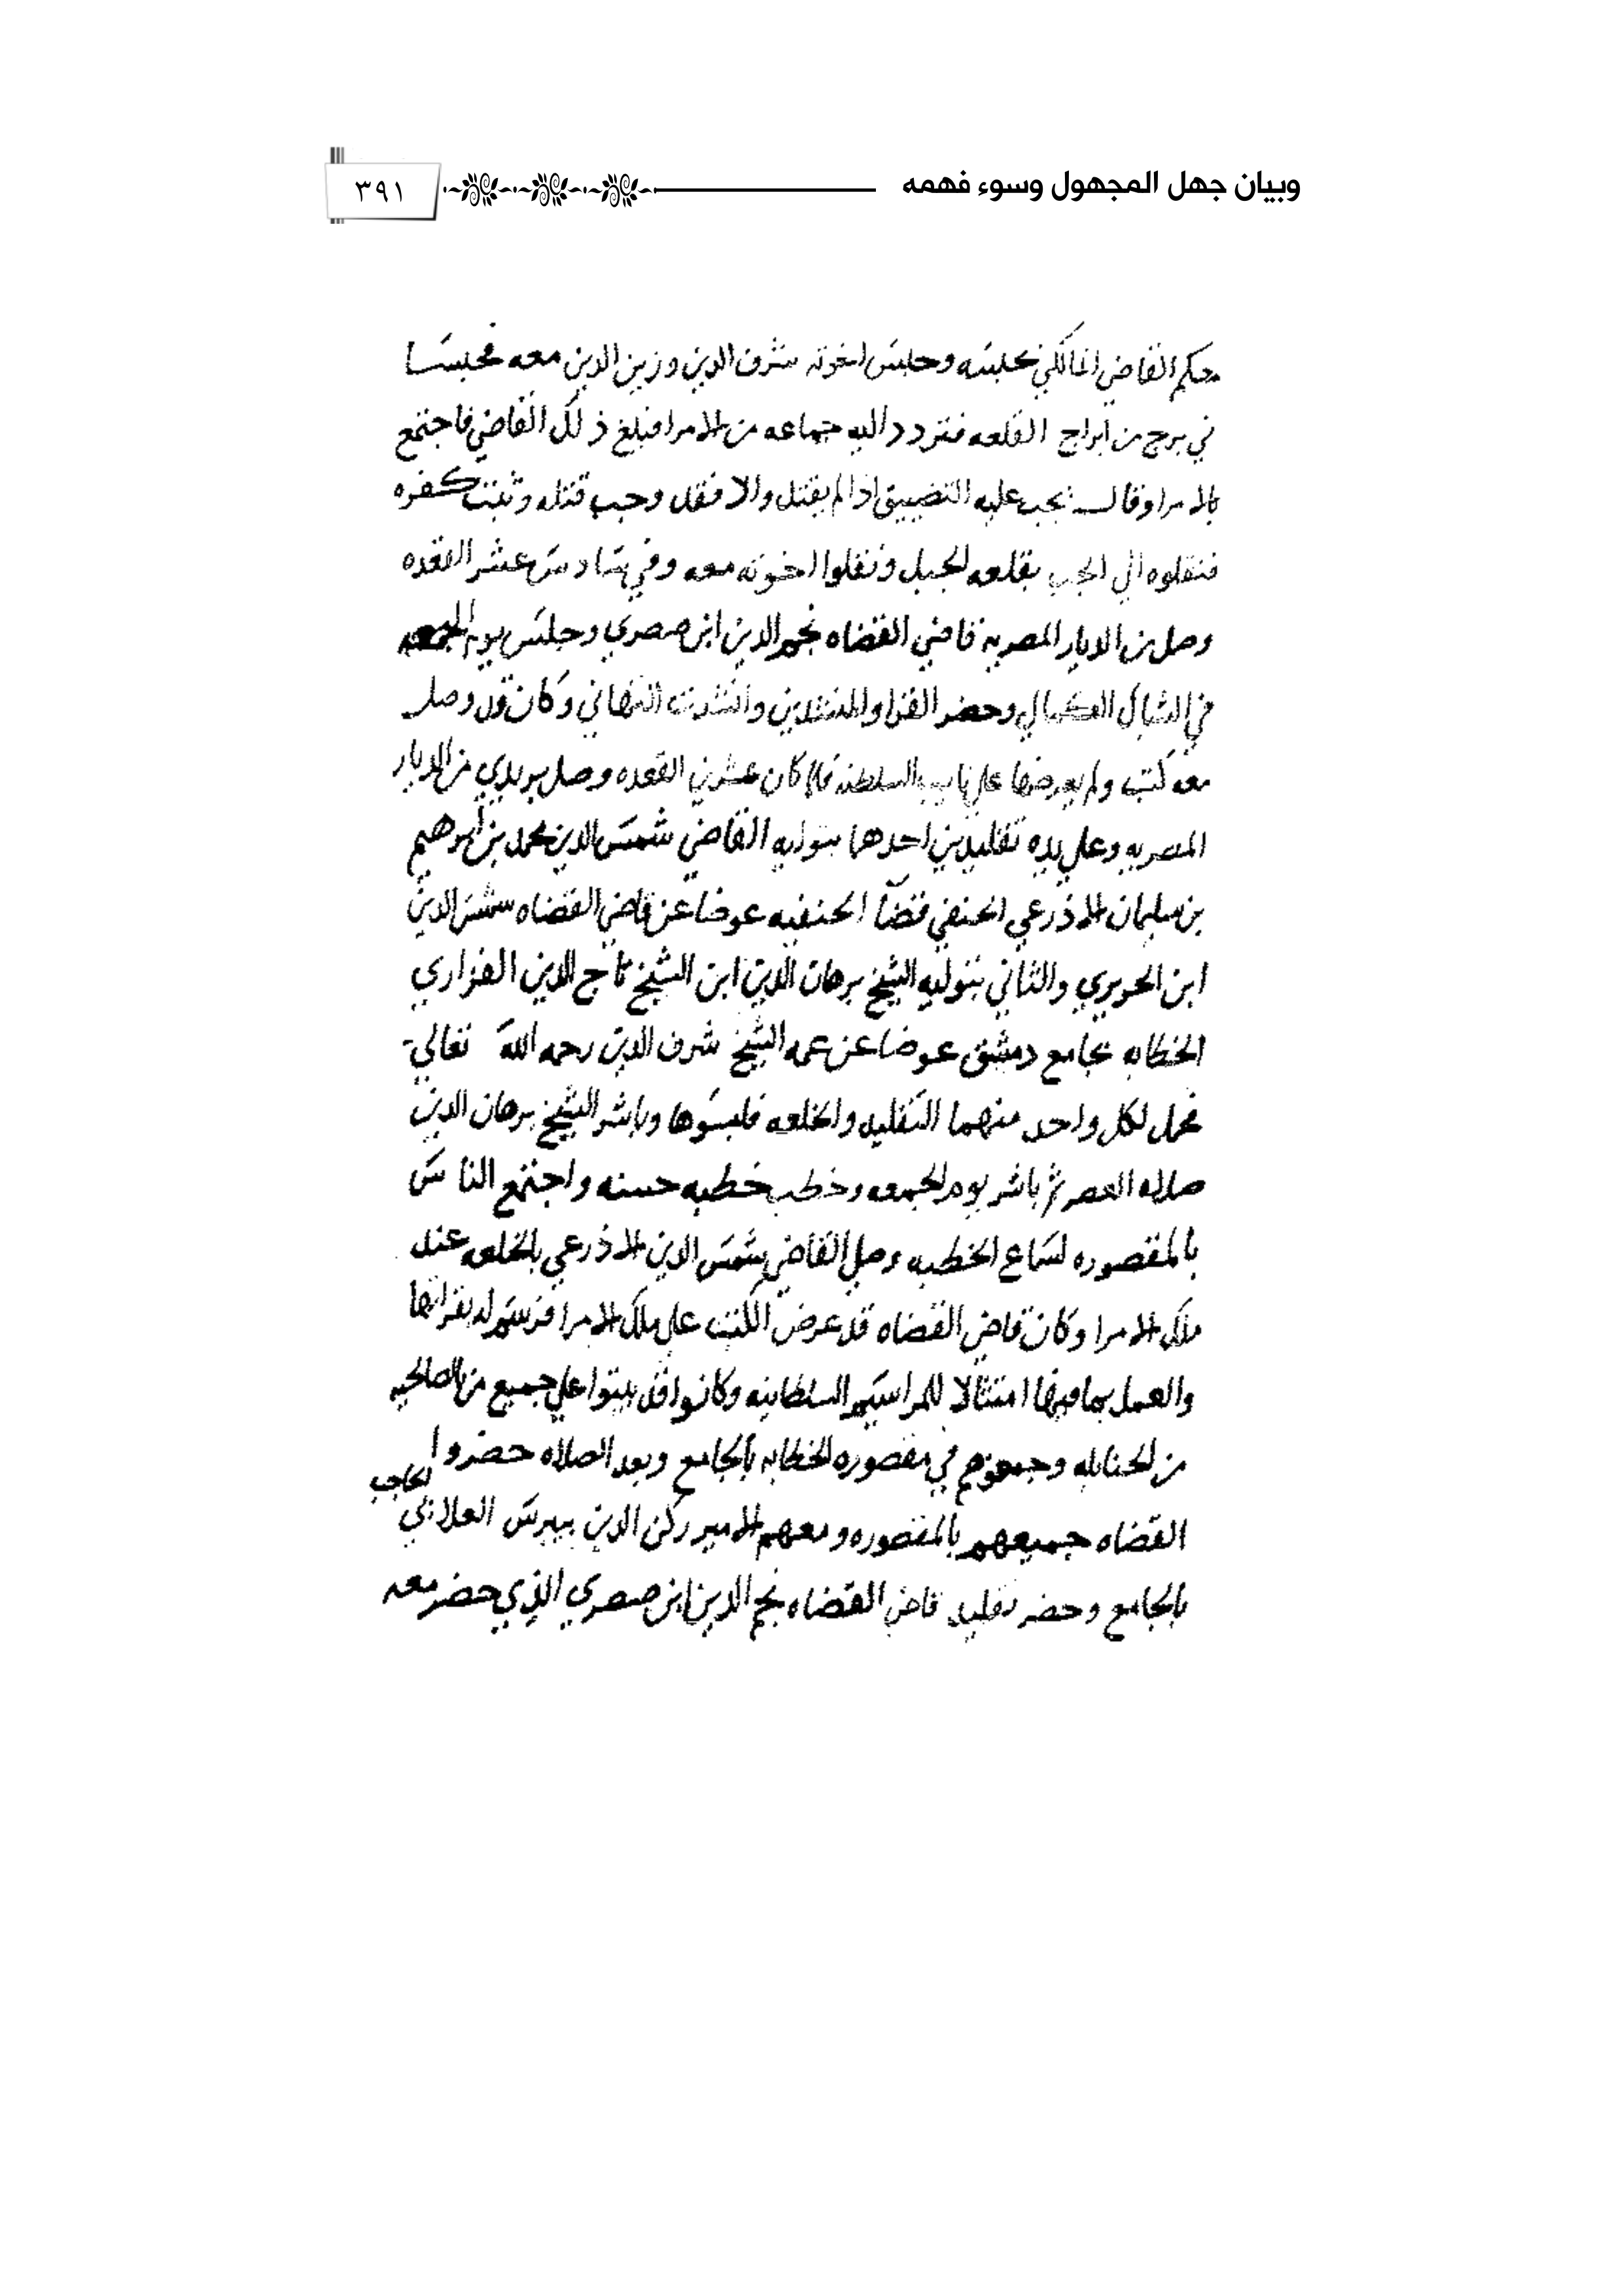 وبيان جهل المجهول وسوء فهمه
٣٩١
حكم القاضي المالكي بحبسه وحبس اخوته شرف الدين وزين الدين معه فحبسا
في برج من ابراج القلعه فتردد اليه جماعه من الامرا فبلغ ذلك القاضي فاجتمع
بالامرا وقال يجب عليه التضييق اذا لم يقتل والا فقد وجب قتله وثبت كفره
فنقلوه الي الجب بقلعه الجبل ونقلوا اخوته معه وفي سادس عشر القعده
وصل من الديار المصريه قاضي القضاه نجم الدين ابن صصري وجلس يوم الجمعه
في الشباك الكمالي وحضر القرا والمنشدين وانشدت التهاني وكان قد وصل
معه كتب ولم يعرضها علي نايب السلطنه فلما كان عشرني القعده وصل بريدي من الديار
المصريه وعلي يده تقليدين احدهما بتوليه القاضي شمس الدين محمد بن ابرهيم
بن سليمان الاذرعي الحنفي قضا الحنفيه عوضا عن قاضي القضاه شمس الدين
ابن الحريري والثاني بتوليه الشيخ برهان الدين ابن الشيخ تاج الدين الفزاري
الخطابه بجامع دمشق عوضا عن عمه الشيخ شرف الدين رحمه الله تعالي
فحمل لكل واحد منهما التقليد والخلعه فلبسوها وباشر الشيخ برهان الدين
صلاه العصر ثم باشر يوم الجمعه وخطب خطبه حسنه واجتمع الناس
بالمقصوره لسماع الخطبه وصلي القاضي شمس الدين الاذرعي بالخلعه عند
ملك الامرا وكان قاضي القضاه قد عرض الكتب علي ملك الامرا فرسم له بقراتها
والعمل بما فيها امتثالا للمراسيم السلطانيه وكانوا قد بيتوا علي جميع من بالصالحيه
من الحنابله وجمعوهم في مقصوره الخطابه بالجامع وبعد الصلاه حضروا
القضاه جميعهم بالمقصوره ومعهم الامير ركن الدين بيبرس العلائي الحاجب
بالجامع وحضر تقليد قاضي القضاه نجم الدين ابن صصري الذي حضر معه